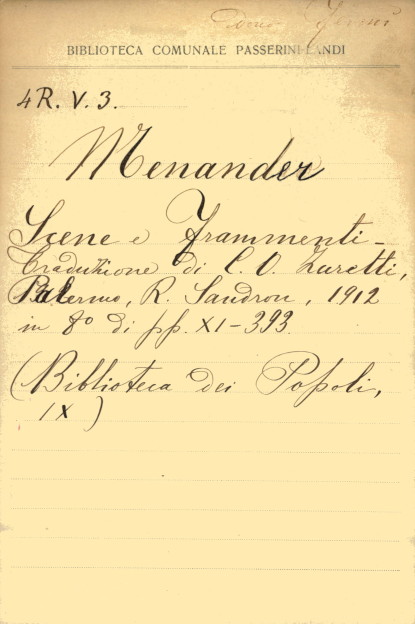 Dono
BIBLIOTECA COMUNALE PASSERINI-LANDI
4R. V. 3.
Menander
Scene e Frammenti-
Traduzione di C. O. Zuretti,
Palermo, R. Sandron, 1912
in 8º di pp. XI-393
(Biblioteca dei Popoli,
IX)